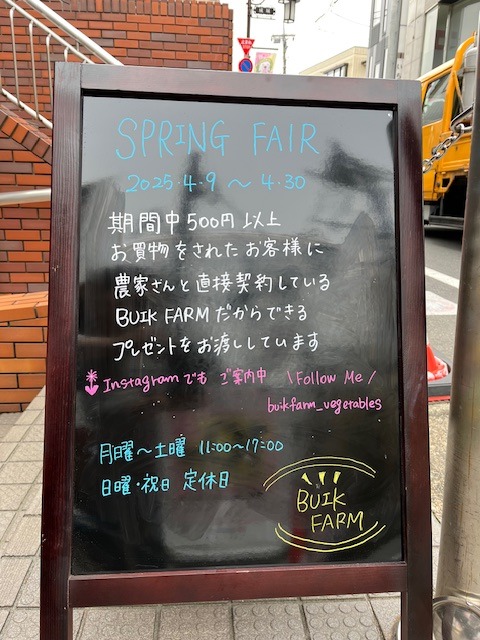 SPRING FAIR
2025.4.9 〜 4.30
期間中500円以上
お買物をされたお客様に
農家さんと直接契約している
BUIK FARMだからできる
プレゼントをお渡ししています
Instagramでも ご案内中 \Follow Me/
buikfarm_vegetables
月曜〜土曜 11:00〜17:00
日曜・祝日 定休日
BUIK
FARM